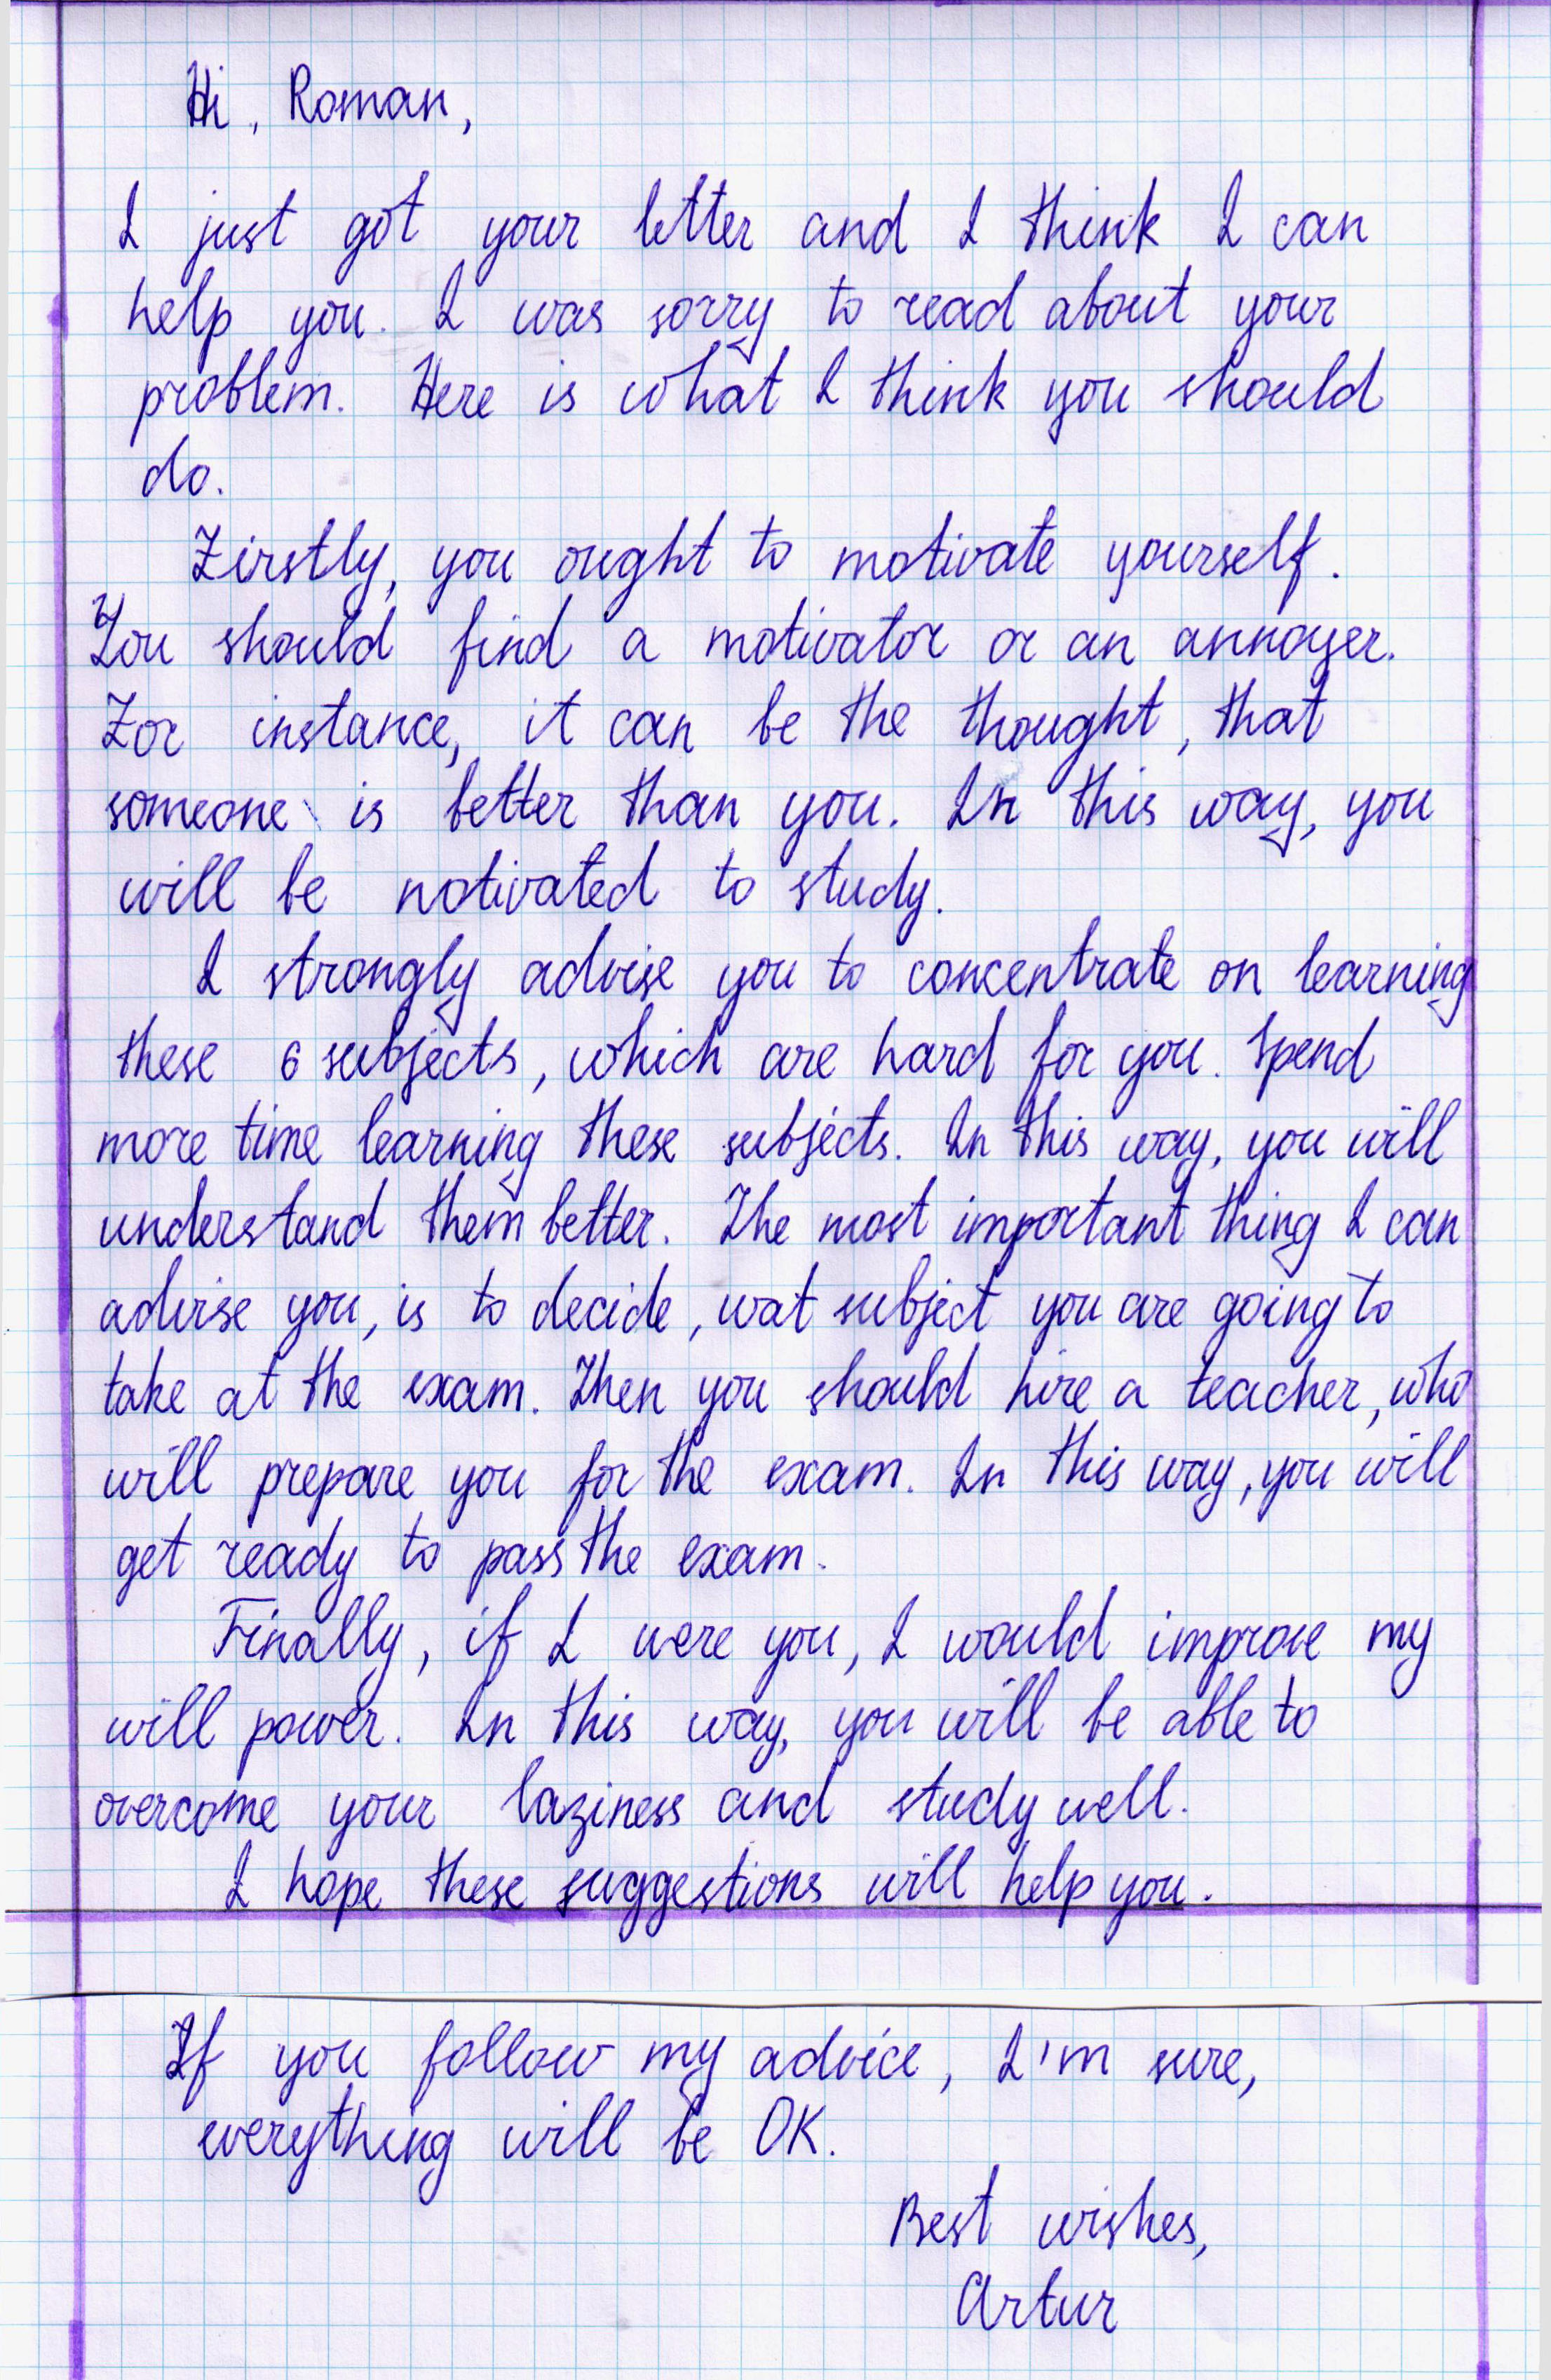 Hi, Roman,
I just got your letter and I think I can
help you. I was sorry to read about your
problem. Here is what I think you should
do.
Firstly, you ought to motivate yourself.
You should find a motivator or an annoyer.
For instance, it can be the thought, that
someone is better than you. In this way, you
will be notivated to study.
I strongly advise you to concentrate on learning
these 6 subjects, which are hard for you. Spend
more time learning these subjects. In this way, you will
understand them better. The most important thing I can
advise you, is to decide, wat subject you are going to
take at the exam. Then you should hire a teacher, who
will prepare you for the exam. In this way, you will
get ready to pass the exam.
Finally, if I were you, I would improve my
will power. In this way, you will be able to
overcome your laziness and study well.
I hope these suggestions will help you.
If you follow my advice, I'm sure,
everything will be OK.
Best wishes,
Artur